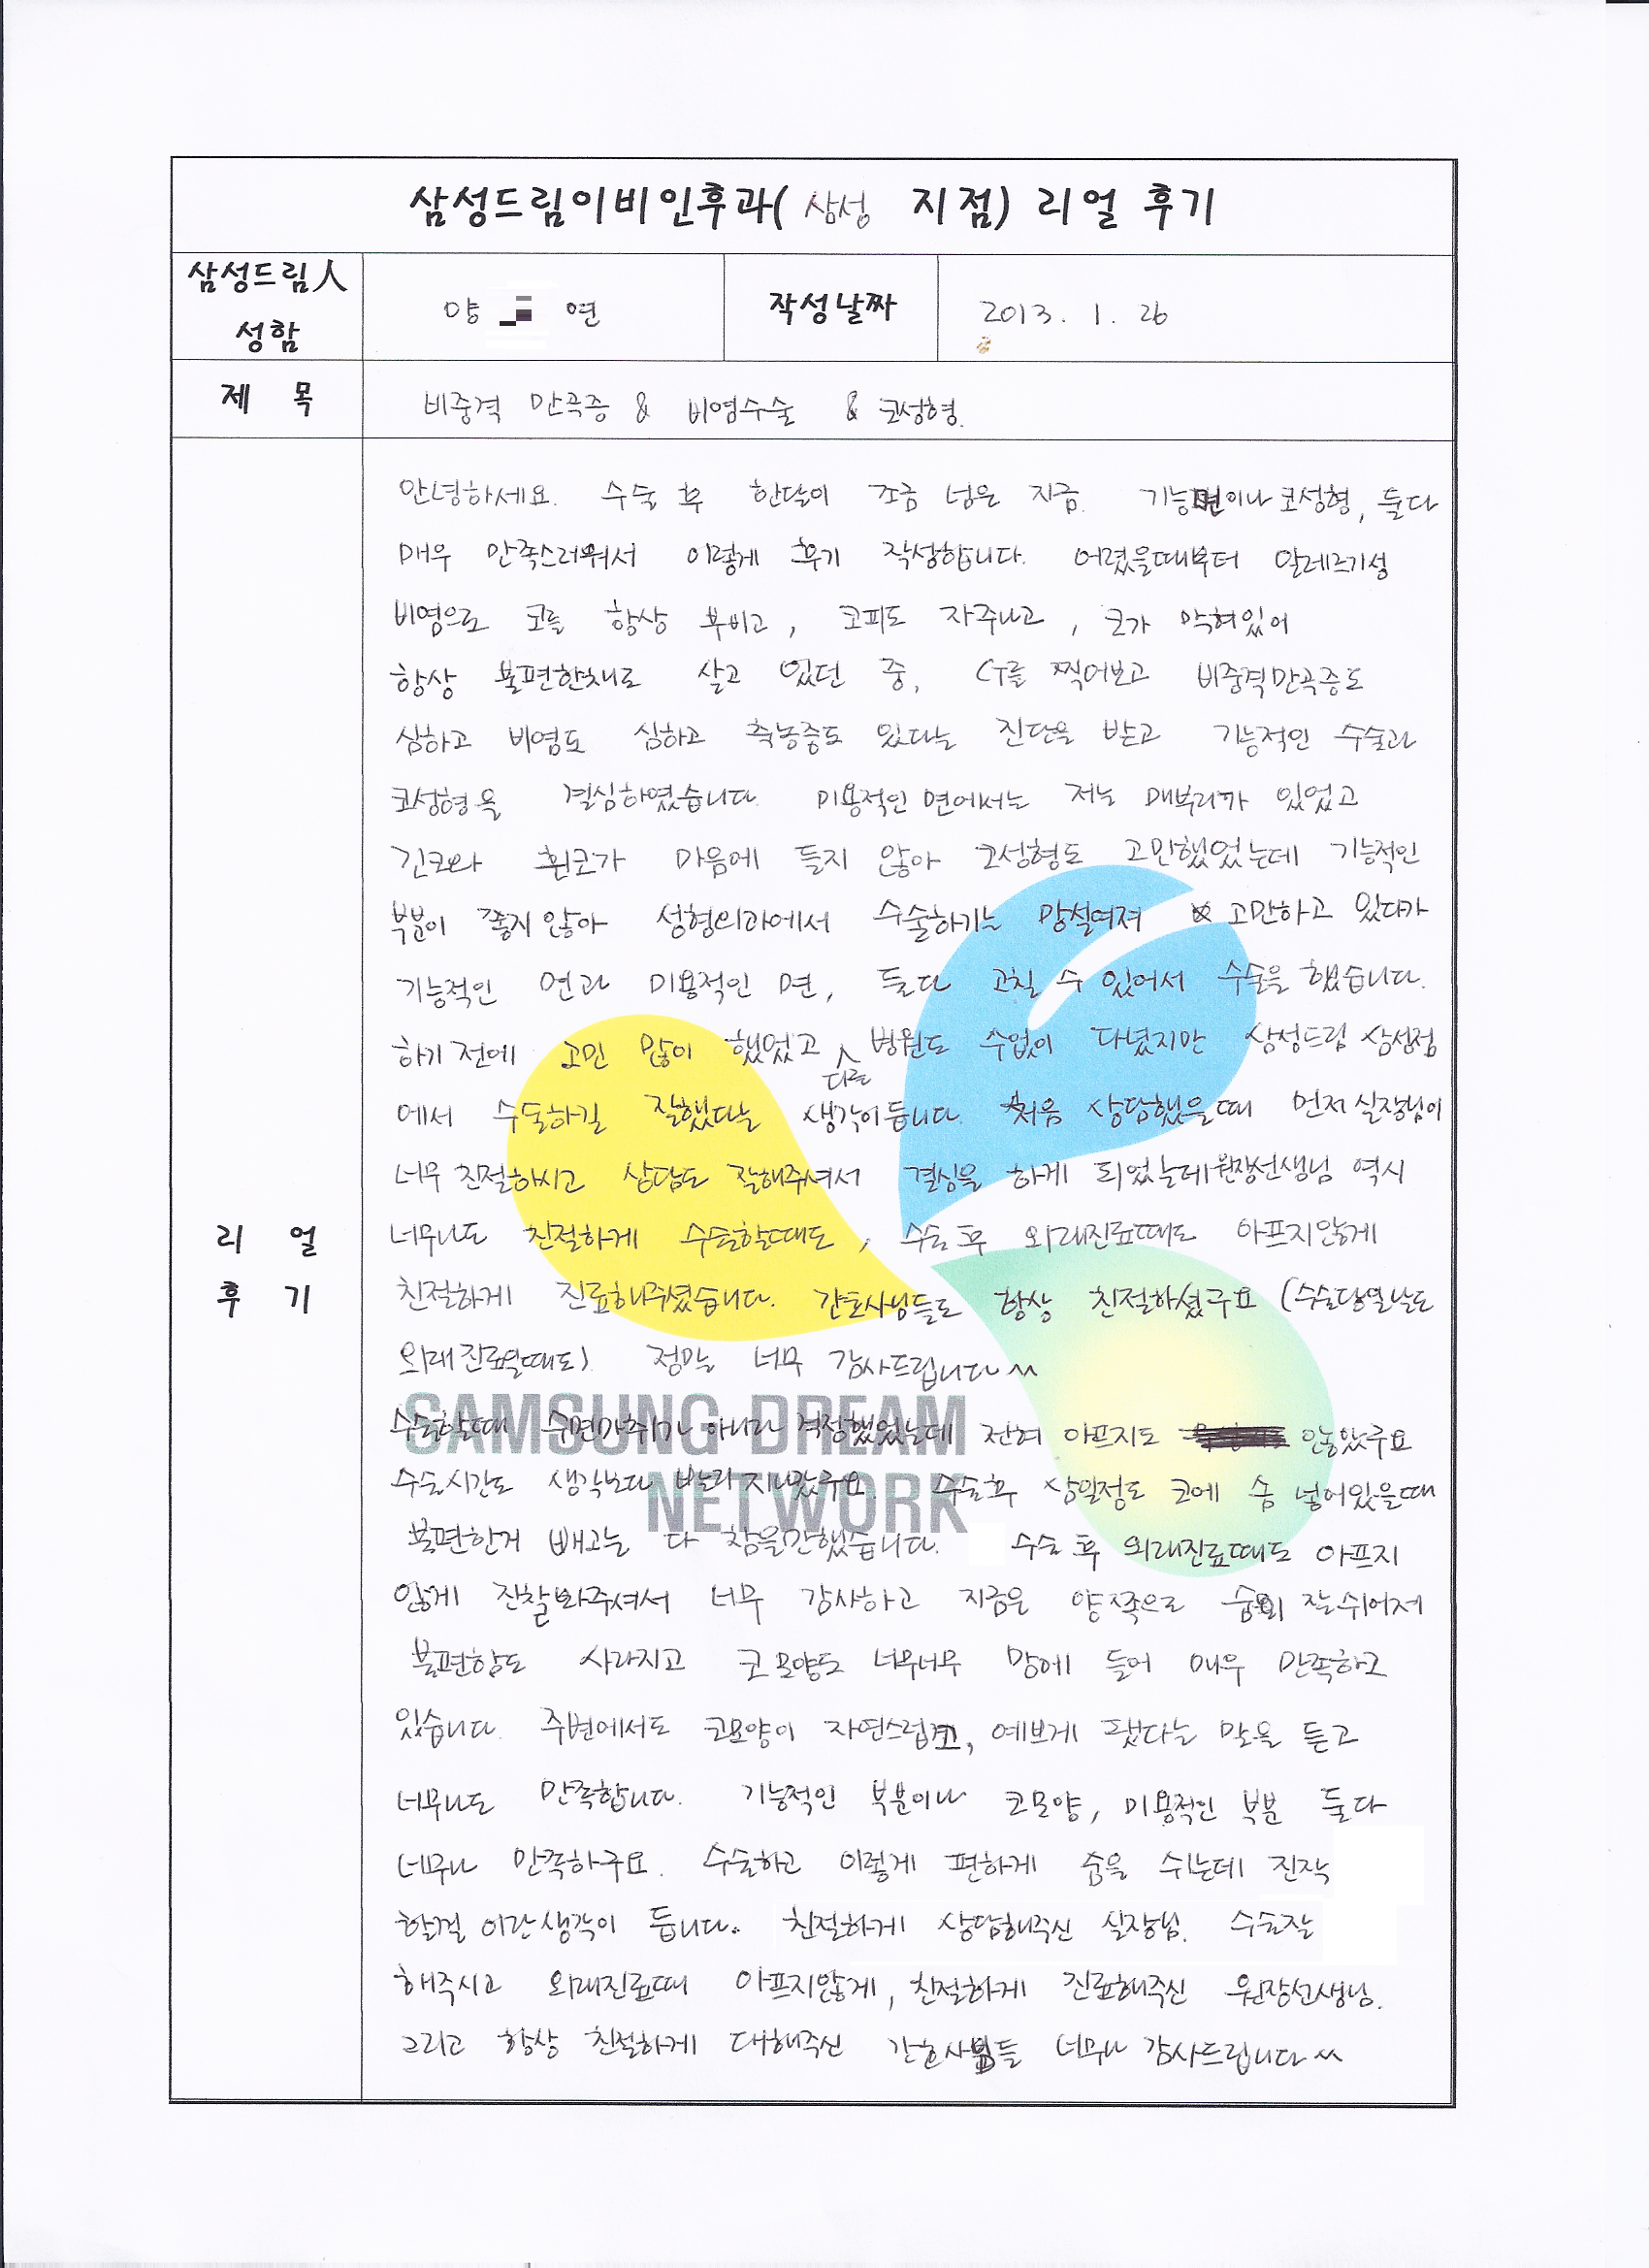 삼성드림이비인후과( 삼성 지점) 리얼 후기
삼성드림人
성함
양 연
작성날짜
2013. 1. 26
제 목
비중격 만곡증 & 비염수술 & 코성형.
리 얼
후 기
안녕하세요. 수술 후 한달이 조금 넘은 지금. 기능면이나 코성형, 둘다
매우 만족스러워서 이렇게 후기 작성합니다. 어렸을때부터 알레르기성
비염으로 코를 항상 부비고, 코피도 자주나고, 코가 막혀있어
항상 불편한채로 살고 있던 중, CT를 찍어보고 비중격만곡증도
심하고 비염도 심하고 축농증도 있다는 진단을 받고 기능적인 수술과
코성형을 결심하였습니다. 미용적인 면에서는 저는 매부리가 있었고
긴코와 휜코가 마음에 들지 않아 코성형도 고민했었는데 기능적인
부분이 좋지 않아 성형외과에서 수술하기는 망설여져 고민하고 있다가
기능적인 면과 미용적인 면, 둘다 고칠 수 있어서 수술을 했습니다.
하기 전에 고민 많이 했었고 다른 병원도 수없이 다녔지만 삼성드림 삼성점
에서 수술하길 잘했다는 생각이 듭니다. 처음 상담했을때 먼저 실장님이
너무 친절하시고 상담도 잘해주셔서 결심을 하게 되었는데 원장선생님 역시
너무나도 친절하게 수술할때도, 수술 후 외래진료때도 아프지않게
친절하게 진료해주셨습니다. 간호사님들도 항상 친절하셨구요 (수술당일날도
외래진료일때도). 정말 너무 감사드립니다^^
수술할때 수면마취가 아니라 걱정했었는데 전혀 아프지도 않았구요
수술시간도 생각보다 빨리 지나갔구요. 수술후 삼일정도 코에 솜 넣어있을때
불편한거 빼고는 다 참을만했습니다. 수술 후 외래진료때도 아프지
않게 진찰봐주셔서 너무 감사하고 지금은 양쪽으로 숨이 잘 쉬어져
불편함도 사라지고 코모양도 너무너무 맘에 들어 매우 만족하고
있습니다. 주변에서도 코모양이 자연스럽고, 예쁘게 됐다는 말을 듣고
너무나도 만족합니다. 기능적인 부분이나 코모양, 미용적인 부분 둘다
너무나 만족하구요. 수술하고 이렇게 편하게 숨을 쉬는데 진작
할걸 이란생각이 듭니다.. 친절하게 상담해주신 실장님. 수술잘
해주시고 외래진료때 아프지않게, 친절하게 진료해주신 원장선생님.
그리고 항상 친절하게 대해주신 간호사분들 너무나 감사드립니다^^
SAMSUNG DREAM
NETWORK